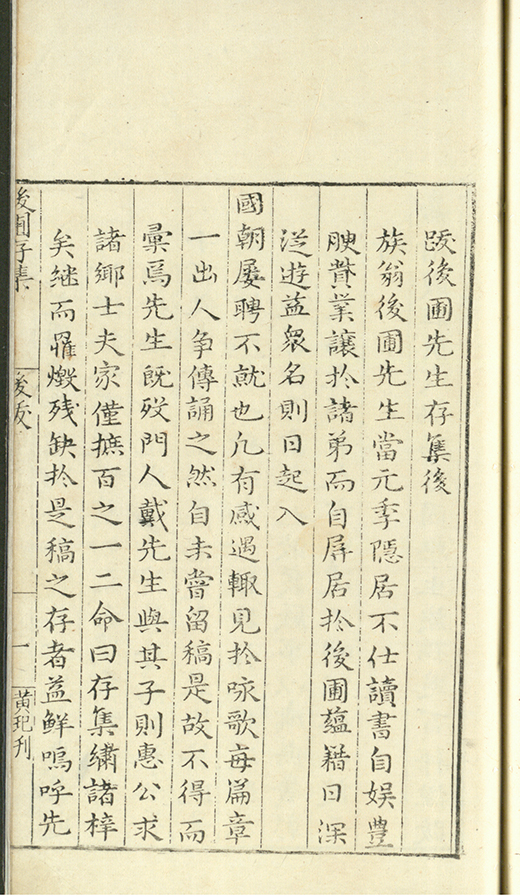 跋後圃先生存集後
族翁後圃先生當元季隱居不仕讀書自娛豊
腴貲業讓扵諸弟而自屏居扵後圃蘊籍日深
從遊益衆名則日起入
國朝屢聘不就也凡有感遇輙見扵咏歌每篇章
一出人争傳誦之然自未嘗留稿是故不得而
彙焉先生既歿門人戴先生與其子則惠公求
諸鄉士夫家僅摭百之一二命曰存集繡諸梓
矣継而罹燬残缺扵是稿之存者益鮮嗚呼先
後圃存集
後跋
一
黄玘刊